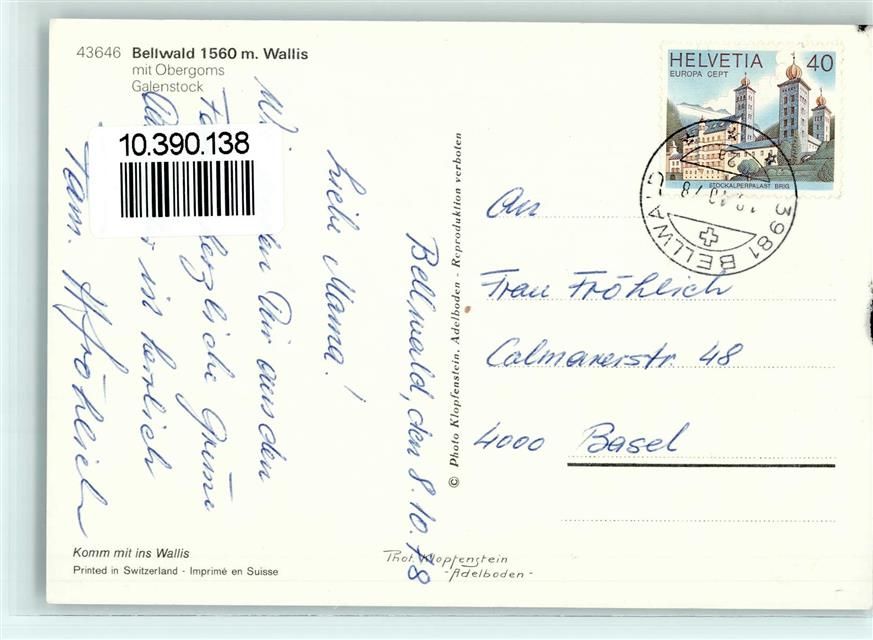 43646 Bellwald 1560 m. Wallis
mit Obergoms
Galenstock
10.390.138
Bellwald, den 8.10.78
Liebe Mama!
Dir aus den
herzliche Grüsse
ist herrlich
Fam. H. Fröhlich
Komm mit ins Wallis
Printed in Switzerland - Imprimé en Suisse
© Photo Klopfenstein, Adelboden - Reproduktion verboten
Phot. Klopfenstein
- Adelboden -
HELVETIA 40
EUROPA CEPT
STOCKALPERPALAST BRIG
3981 BELLWALD
An
Frau Fröhlich
Colmarerstr. 48
4000 Basel